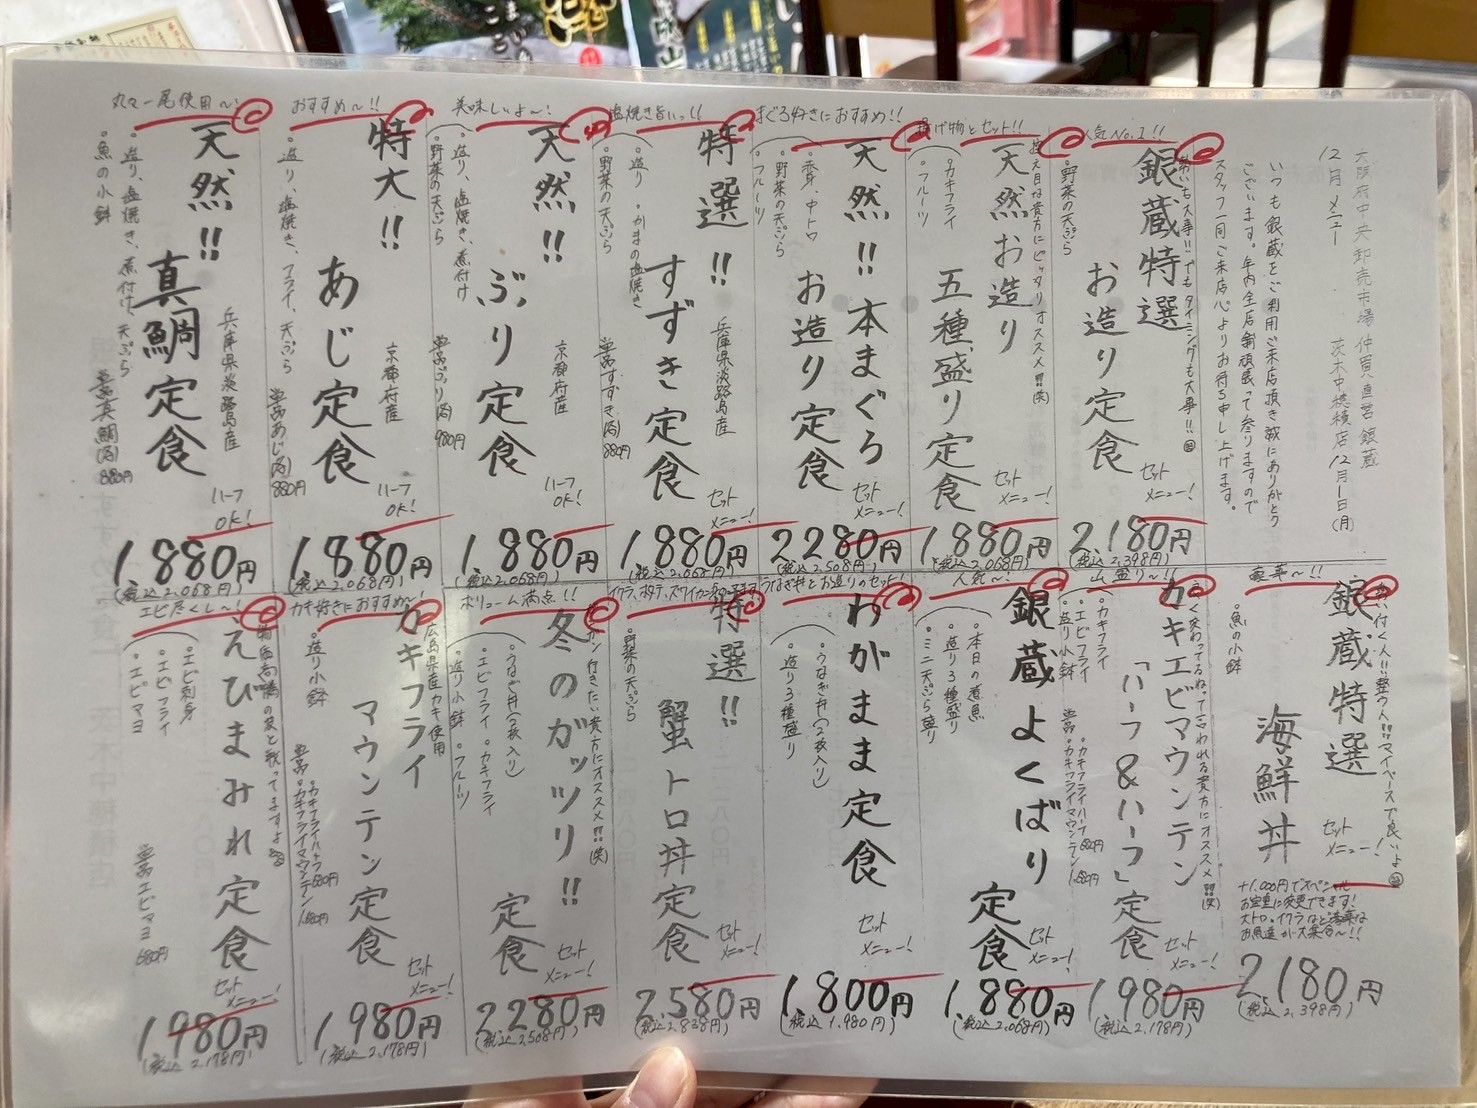 大阪府中央卸売市場 仲買直営 銀蔵
12月メニュー 茨木中穂積店 12月1日(月)
いつも銀蔵をご利用ご来店頂き誠にありがとう
ございます。年内全店舗頑張って参りますので
スタッフ一同ご来店心よりお待ち申し上げます。
人気No.1!!
勢いも大事!!でもタイミングも大事!!
銀蔵特選
お造り定食
・野菜の天ぷら
セットメニュー!
2,180円
(税込2,398円)
揚げ物とセット!!
控え目な貴方にピッタリオススメ!!!(笑)
天然お造り
五種盛り定食
・カキフライ
・フルーツ
セットメニュー!
1,880円
(税込2,068円)
まぐろ好きにおすすめ!!
天然!!本まぐろ
お造り定食
・赤身、中トロ
・野菜の天ぷら
・フルーツ
セットメニュー!
2,280円
(税込2,508円)
塩焼き旨いっ!!
特選!!
兵庫県淡路島産
すずき定食
・造り ・かまの塩焼き
・野菜の天ぷら
単品すずき(造) 880円
セットメニュー!
1,880円
(税込2,068円)
美味しいよ~!
天然!!
京都府産
ぶり定食
・造り、塩焼き、煮付け
・野菜の天ぷら
単品ぶり(造) 980円
ハーフOK!
1,880円
(税込2,068円)
おすすめ~!!
特大!!
京都府産
あじ定食
・造り、塩焼き、フライ、天ぷら
単品あじ(造) 880円
ハーフOK!
1,880円
(税込2,068円)
丸々一尾使用~!
天然!!
兵庫県淡路島産
真鯛定食
・造り、塩焼き、煮付け、天ぷら
・魚の小鉢
単品真鯛(造) 880円
ハーフOK!
1,880円
(税込2,068円)
豪華~!!
銀蔵特選
海鮮丼
・魚の小鉢
セットメニュー!
+1,000円でスペシャル
お宝重に変更できます!
大トロ・イクラなど豪華な
お魚達が大集合~!!
2,180円
(税込2,398円)
山盛り~!!
よく変わってるねって言われる貴方にオススメ!!!(笑)
カキエビマウンテン
「ハーフ&ハーフ」定食
・カキフライ
・エビフライ
・造り小鉢
単品・カキフライハーフ 680円
・カキフライマウンテン 1,680円
セットメニュー!
1,980円
(税込2,178円)
人気~!
銀蔵よくばり
定食
・本日の煮魚
・造り3種盛り
・ミニ天ぷら盛り
セットメニュー!
1,880円
(税込2,068円)
うなぎ丼とお造りのセット!
わがまま定食
・うなぎ丼(2枚入り)
・造り3種盛り
セットメニュー!
1,800円
(税込1,980円)
特選!!
蟹トロ丼定食
・野菜の天ぷら
セットメニュー!
2,580円
(税込2,838円)
ボリューム満点!!
冬のガッツリ!!
定食
・うなぎ丼(2枚入り)
・エビフライ・カキフライ
・造り小鉢・フルーツ
セットメニュー!
2,280円
(税込2,508円)
カキ好きにおすすめ~!
広島県産カキ使用
カキフライ
マウンテン定食
・造り小鉢
単品・カキフライハーフ 680円
・カキフライマウンテン 1,680円
セットメニュー!
1,980円
(税込2,178円)
エビ尽くし~!
えびまみれ定食
・エビ刺身
・エビフライ
・エビマヨ
単品エビマヨ 680円
セットメニュー!
1,980円
(税込2,178円)